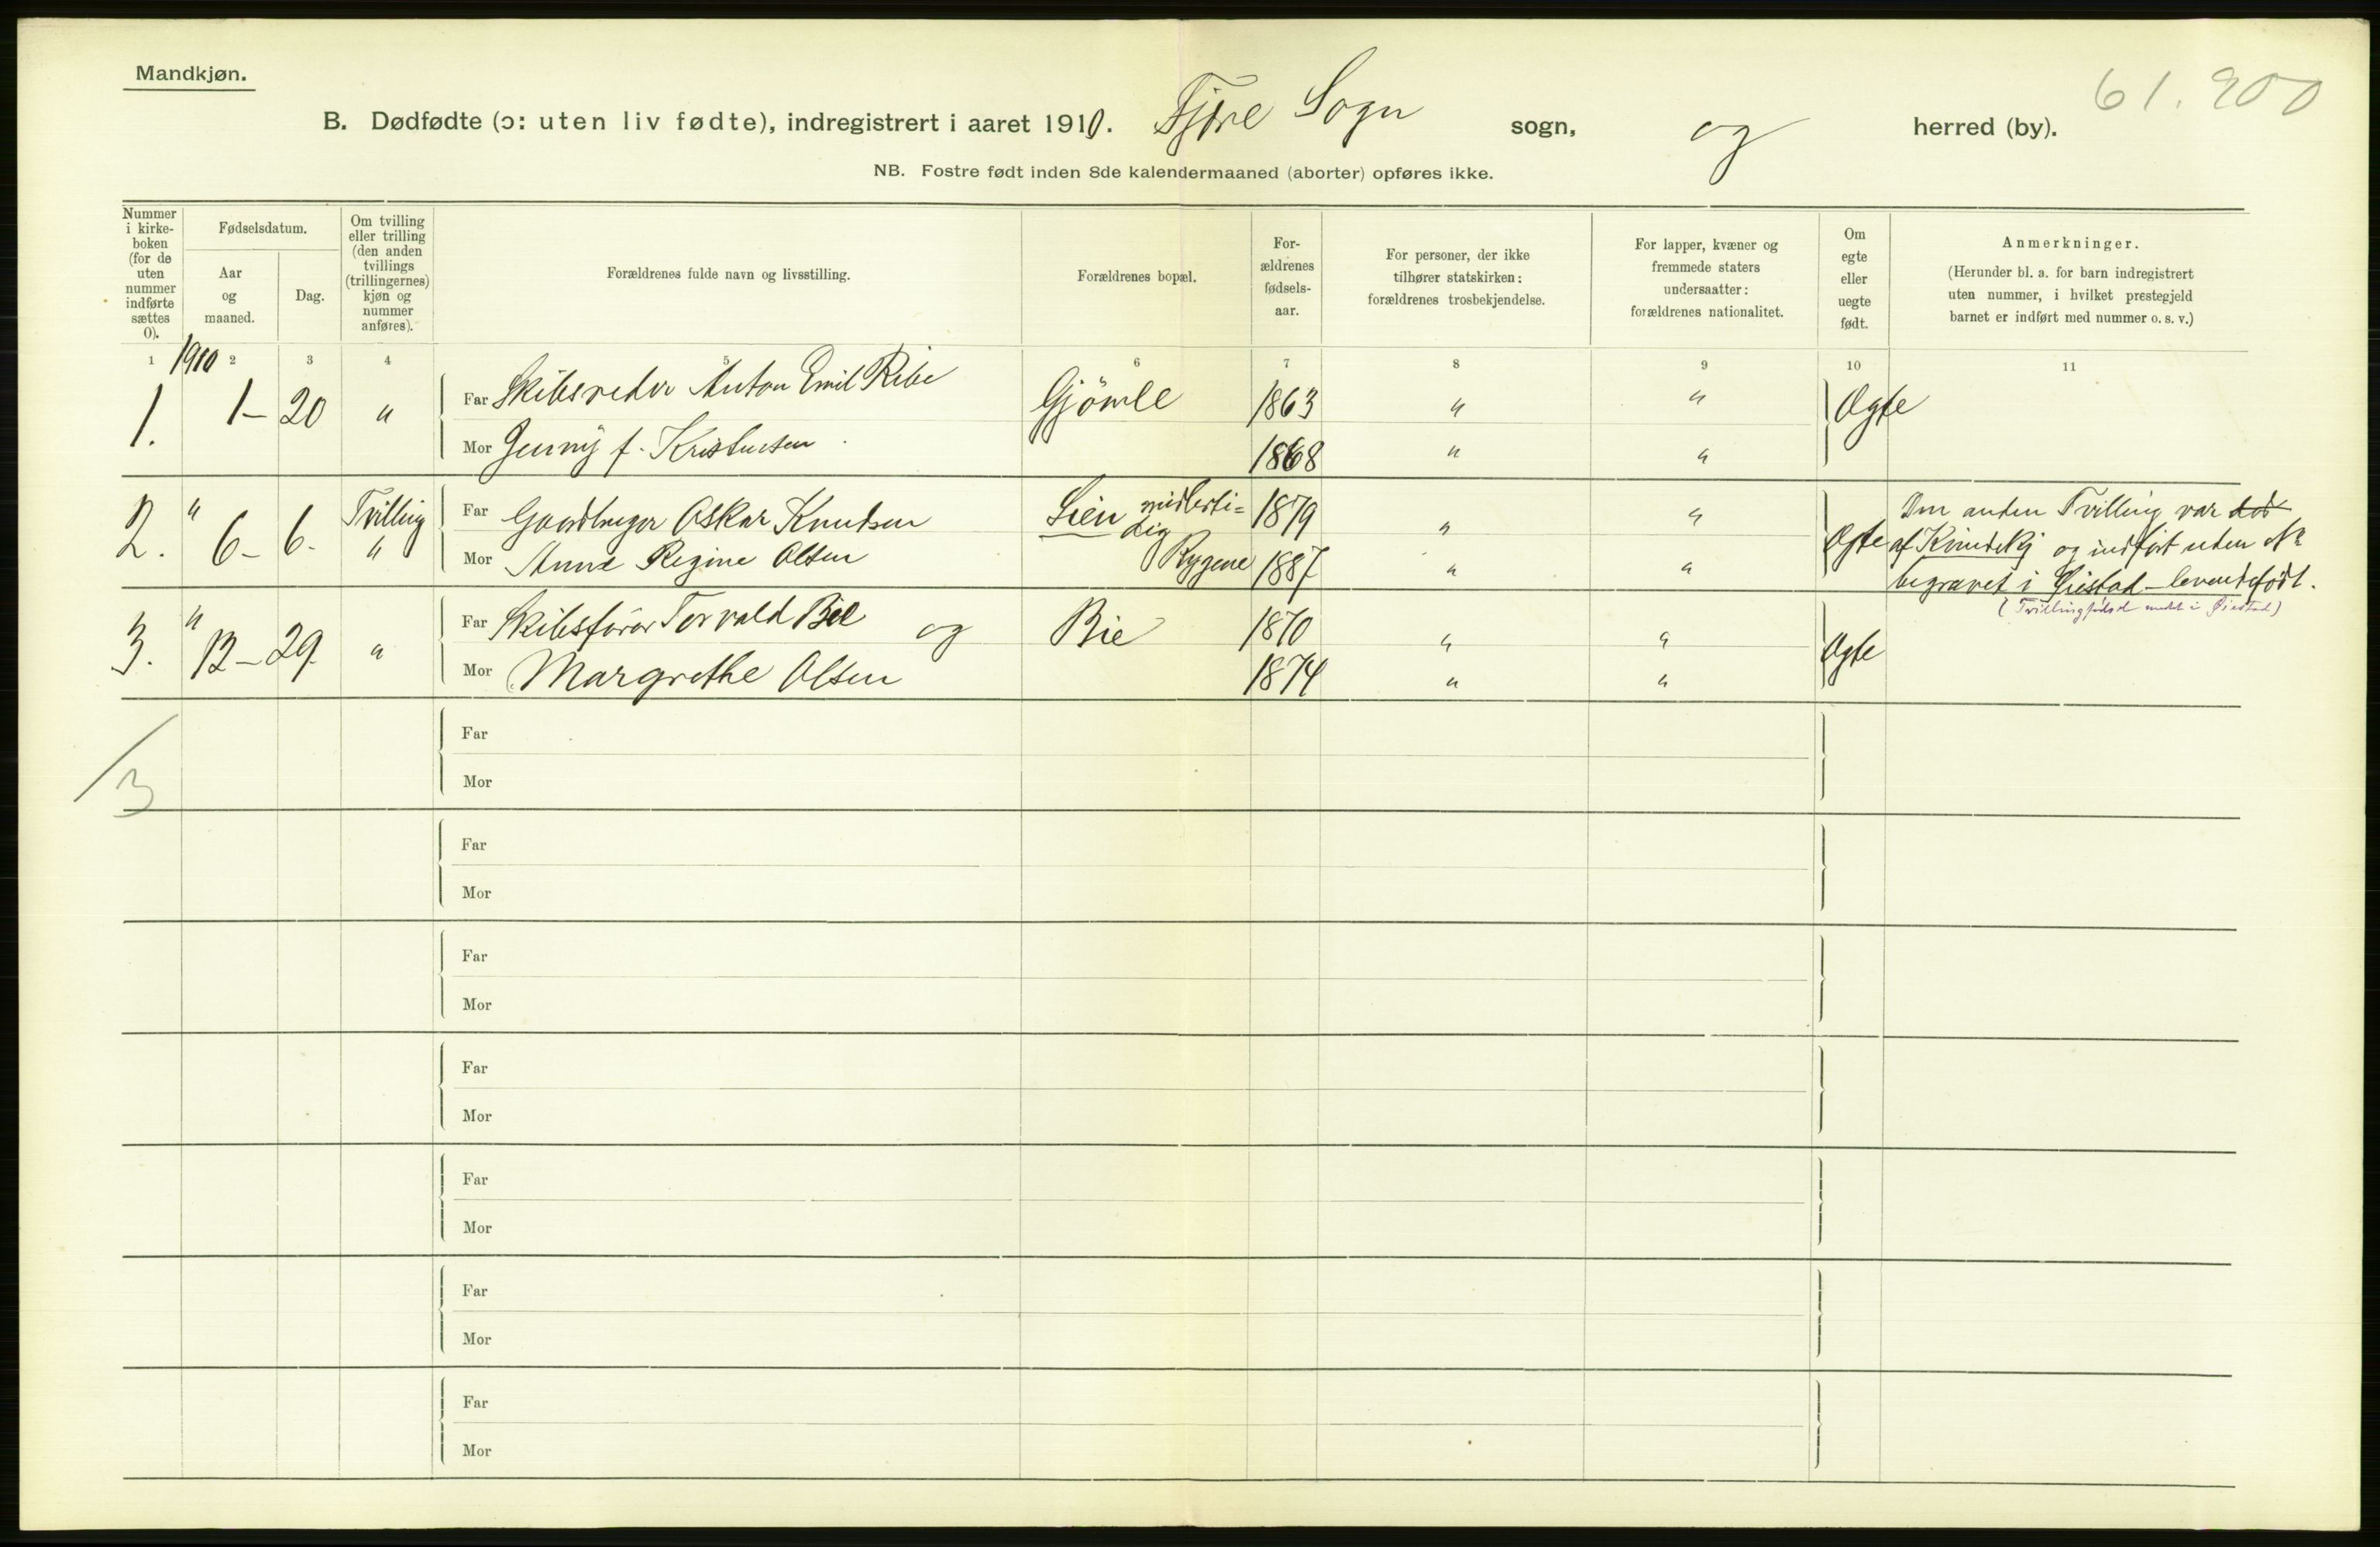 Mandkjøn.
61.200
B. Dødfødte (ɔ: uten liv fødte), indregistrert i aaret 1910. Fjære Sogn sogn, og herred (by).
NB. Fostre født inden 8de kalendermaaned (aborter) opføres ikke.
Nummer
i kirke-
boken
(for de
uten
nummer
indførte
sættes
0).
Fødselsdatum.
Aar
og
maaned.
Dag.
Om tvilling
eller trilling
(den anden
tvillings
(trillingernes)
kjøn og
nummer
anføres).
Forældrenes fulde navn og livsstilling.
Forældrenes bopæl.
For-
ældrenes
fødsels-
aar.
For personer, der ikke
tilhører statskirken:
forældrenes trosbekjendelse.
For lapper, kvæner og
fremmede staters
undersaatter:
forældrenes nationalitet.
Om
egte
eller
uegte
født.
Anmerkninger.
(Herunder bl. a. for barn indregistrert
uten nummer, i hvilket prestegjeld
barnet er indført med nummer o. s. v.)
1 2 3 4 5 6 7 8 9 10 11
1910
1. 1- 20 " Far Skibsreder Anton Emil Ribe Gjömle 1863 " " Ægte
Mor Jenny f. Kristensen 1868 " "
2. " 6- 6. Tvilling Far Gaardbruger Oskar Knudsen Lien midlerti= 1879 " " Ægte Den anden Tvilling var død
dig
" Mor Anne Regine Olsen Rygene 1887 " " af Kvindekj og indført uden Nr
begravet i Øiestad - levendefödt.
(Tvillingfødsel medt i Øiestad)
3. " 12- 29. " Far Skibsförer Torvald Bie og Bie 1870 " " Ægte
Mor Margrethe Olsen 1874 " "
Far
Mor
3
Far
Mor
Far
Mor
Far
Mor
Far
Mor
Far
Mor
Far
Mor